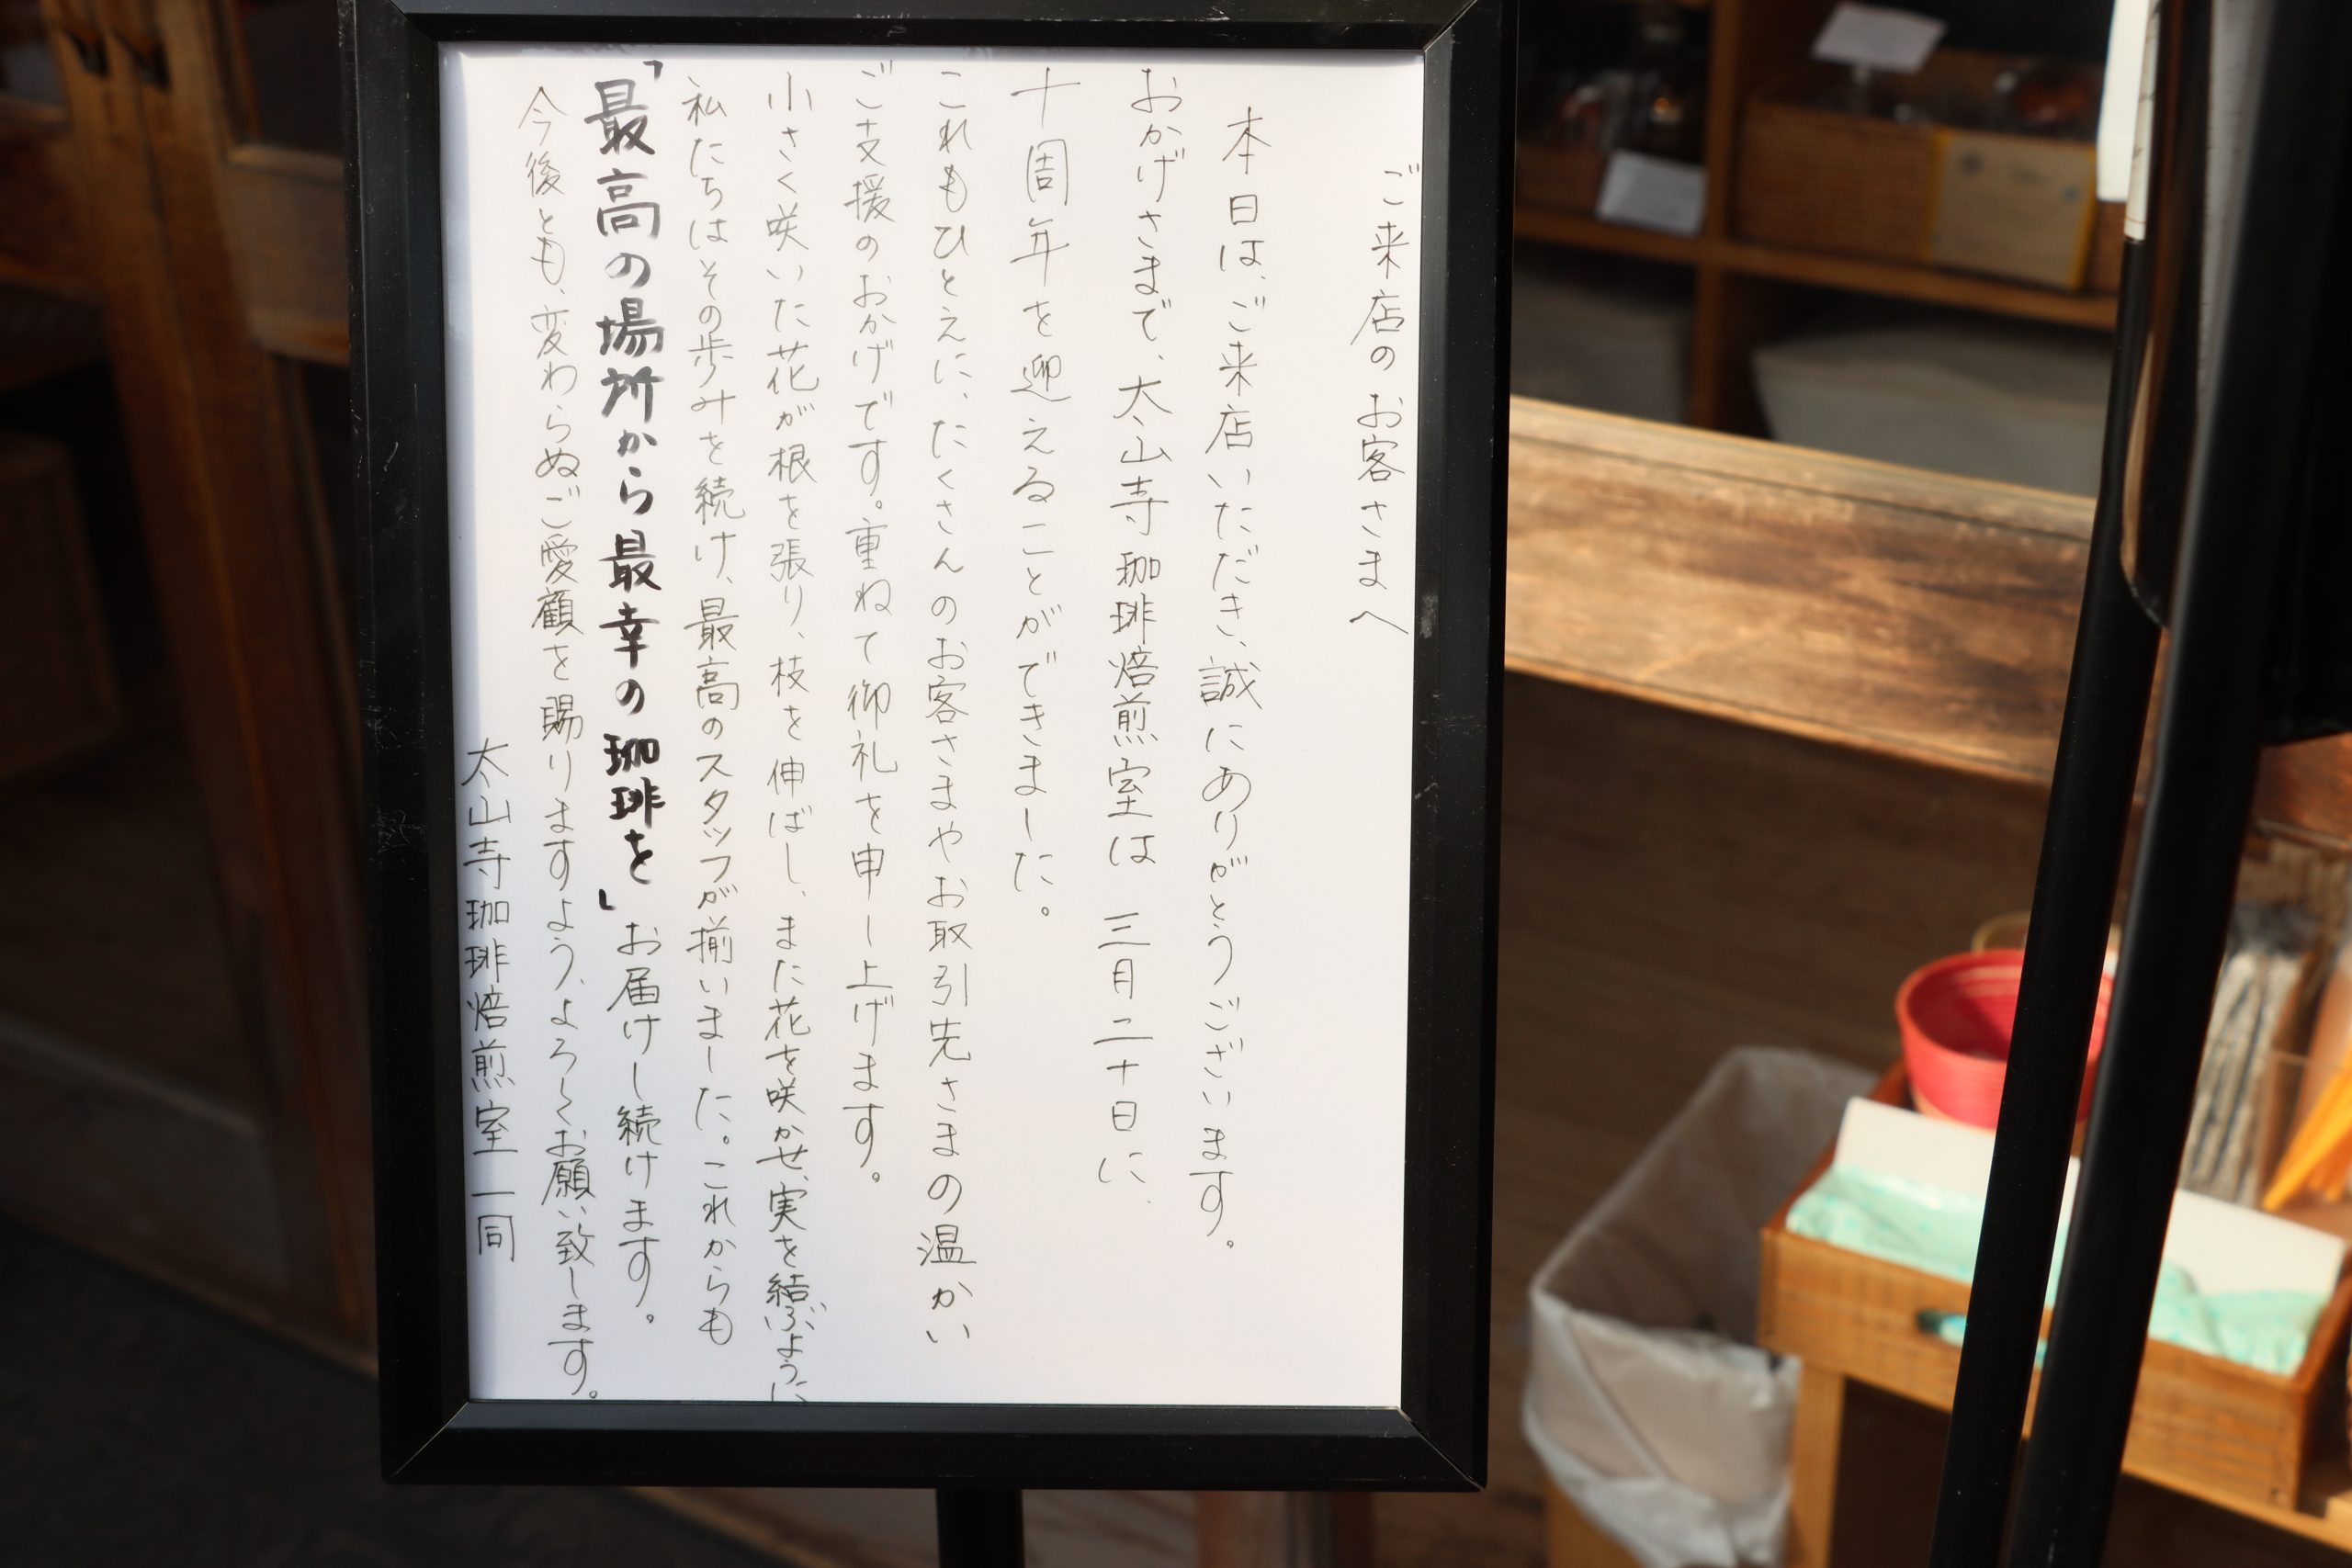 ご来店のお客さまへ
本日は、ご来店いただき、誠にありがとうございます。
おかげさまで、太山寺珈琲焙煎室は三月二十日に、
十周年を迎えることができました。
これもひとえに、たくさんのお客さまやお取引先さまの温かい
ご支援のおかげです。重ねて御礼を申し上げます。
小さく咲いた花が根を張り、枝を伸ばし、また花を咲かせ、実を結ぶように
私たちはその歩みを続け、最高のスタッフが揃いました。これからも
「最高の場所から最幸の珈琲を」お届けし続けます。
今後とも、変わらぬご愛顧を賜りますよう、よろしくお願い致します。
太山寺珈琲焙煎室一同